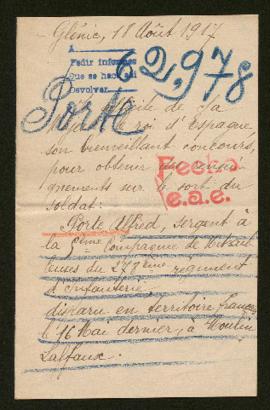 Glénic, 18 Août 1917
A
Pedir informes
Que se haga
Devolver
62,978
Porte
de Sa
roi d'Espagne
son bienveillant concours,
pour obtenir des rensei-
gnements sur le sort du
soldat:
Fecha
e.a.e.
Porte Alfred, sergent à
la Compagnie de Mitrail-
leuses du régiment
d'Infanterie
disparu en territoire français
le 16 Mai dernier, à Moulin
Laffaux.